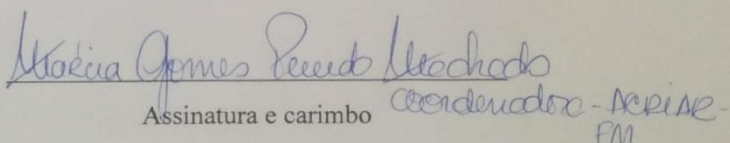 Marcia Gomes Penedo Machado
Assinatura e carimbo Coordenadora - ACRIAR -
FM